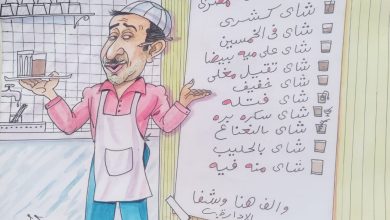 شاى كشرى
شاى فى الخمسين
شاى على ميه بيضا
شاى تقيل مغلى
شاى خفيف
شاى فتله
شاى سكره بره
شاى بالنعناع
شاى بالحليب
شاى منه فيه
والف هنا وشفا
الادارة